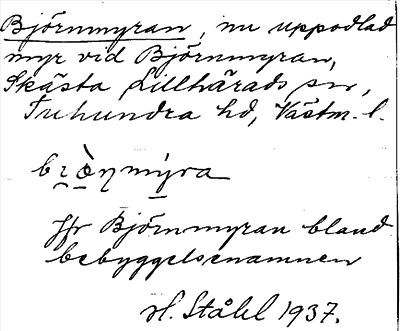 Björnmyran, nu uppodlad
myr vid Björnmyran,
Skästa Lillhärads sn,
Tuhundra hd, Västm. l.
Jfr Björnmyran bland
bebyggelsenamnen
H. Ståhl 1937.